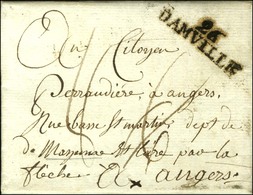 96
DAMVILLE
Au Citoyen
Perraudière, a angers,
Rue basse St martin, dept de
de Mayenne et Loire par la
flèche
angers